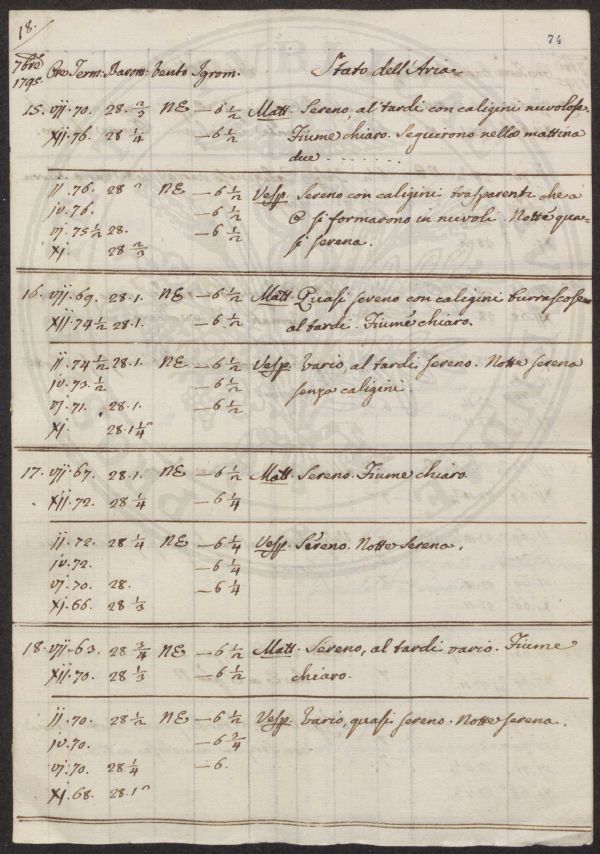 18.
74
7bre
1795. Ore Term: Barom: Vento Igrom: Stato dell'Aria
15. vij. 70. 28. 2/3 NE — 6 1/2 Matt. Sereno, al tardi con caligini nuvolose.
xij. 76. 28 1/4 — 6 1/2 Fiume chiaro. Seguirono nella mattina
due . . . . . . .
ij. 76. 28 NE — 6 1/2 Vesp. Sereno con caligini trasparenti che a
iv. 76. — 6 1/2 si formarono in nuvoli. Notte qua-
vj. 75 1/2 28. — 6 1/2 si serena.
xj. 28 2/3
16. vij. 69. 28. 1. NE — 6 1/2 Matt. Quasi sereno con caligini burrascose
xij. 74 1/2 28. 1. — 6 1/2 al tardi. Fiume chiaro.
ij. 74 1/2 28. 1. NE — 6 1/2 Vesp. Vario, al tardi sereno. Notte serena
iv. 73. 1/2 — 6 1/2 senza caligini.
vj. 71. 28. 1. — 6 1/2
xj. 28. 1 1/4
17. vij. 67. 28. 1. NE — 6 1/2 Matt. Sereno. Fiume chiaro.
xij. 72. 28 1/4 — 6 1/4
ij. 72. 28 1/4 NE — 6 1/4 Vesp. Sereno. Notte serena.
iv. 72. — 6 1/4
vj. 70. 28. — 6 1/4
xj. 66. 28 1/3
18. vij. 63. 28 3/4 NE — 6 1/2 Matt. Sereno, al tardi vario. Fiume
xij. 70. 28 1/3 — 6 1/2 chiaro.
ij. 70. 28 1/2 NE — 6 1/2 Vesp. Vario, quasi sereno. Notte serena.
iv. 70. — 6 2/4
vj. 70. 28 1/4 — 6.
xj. 68. 28. 1